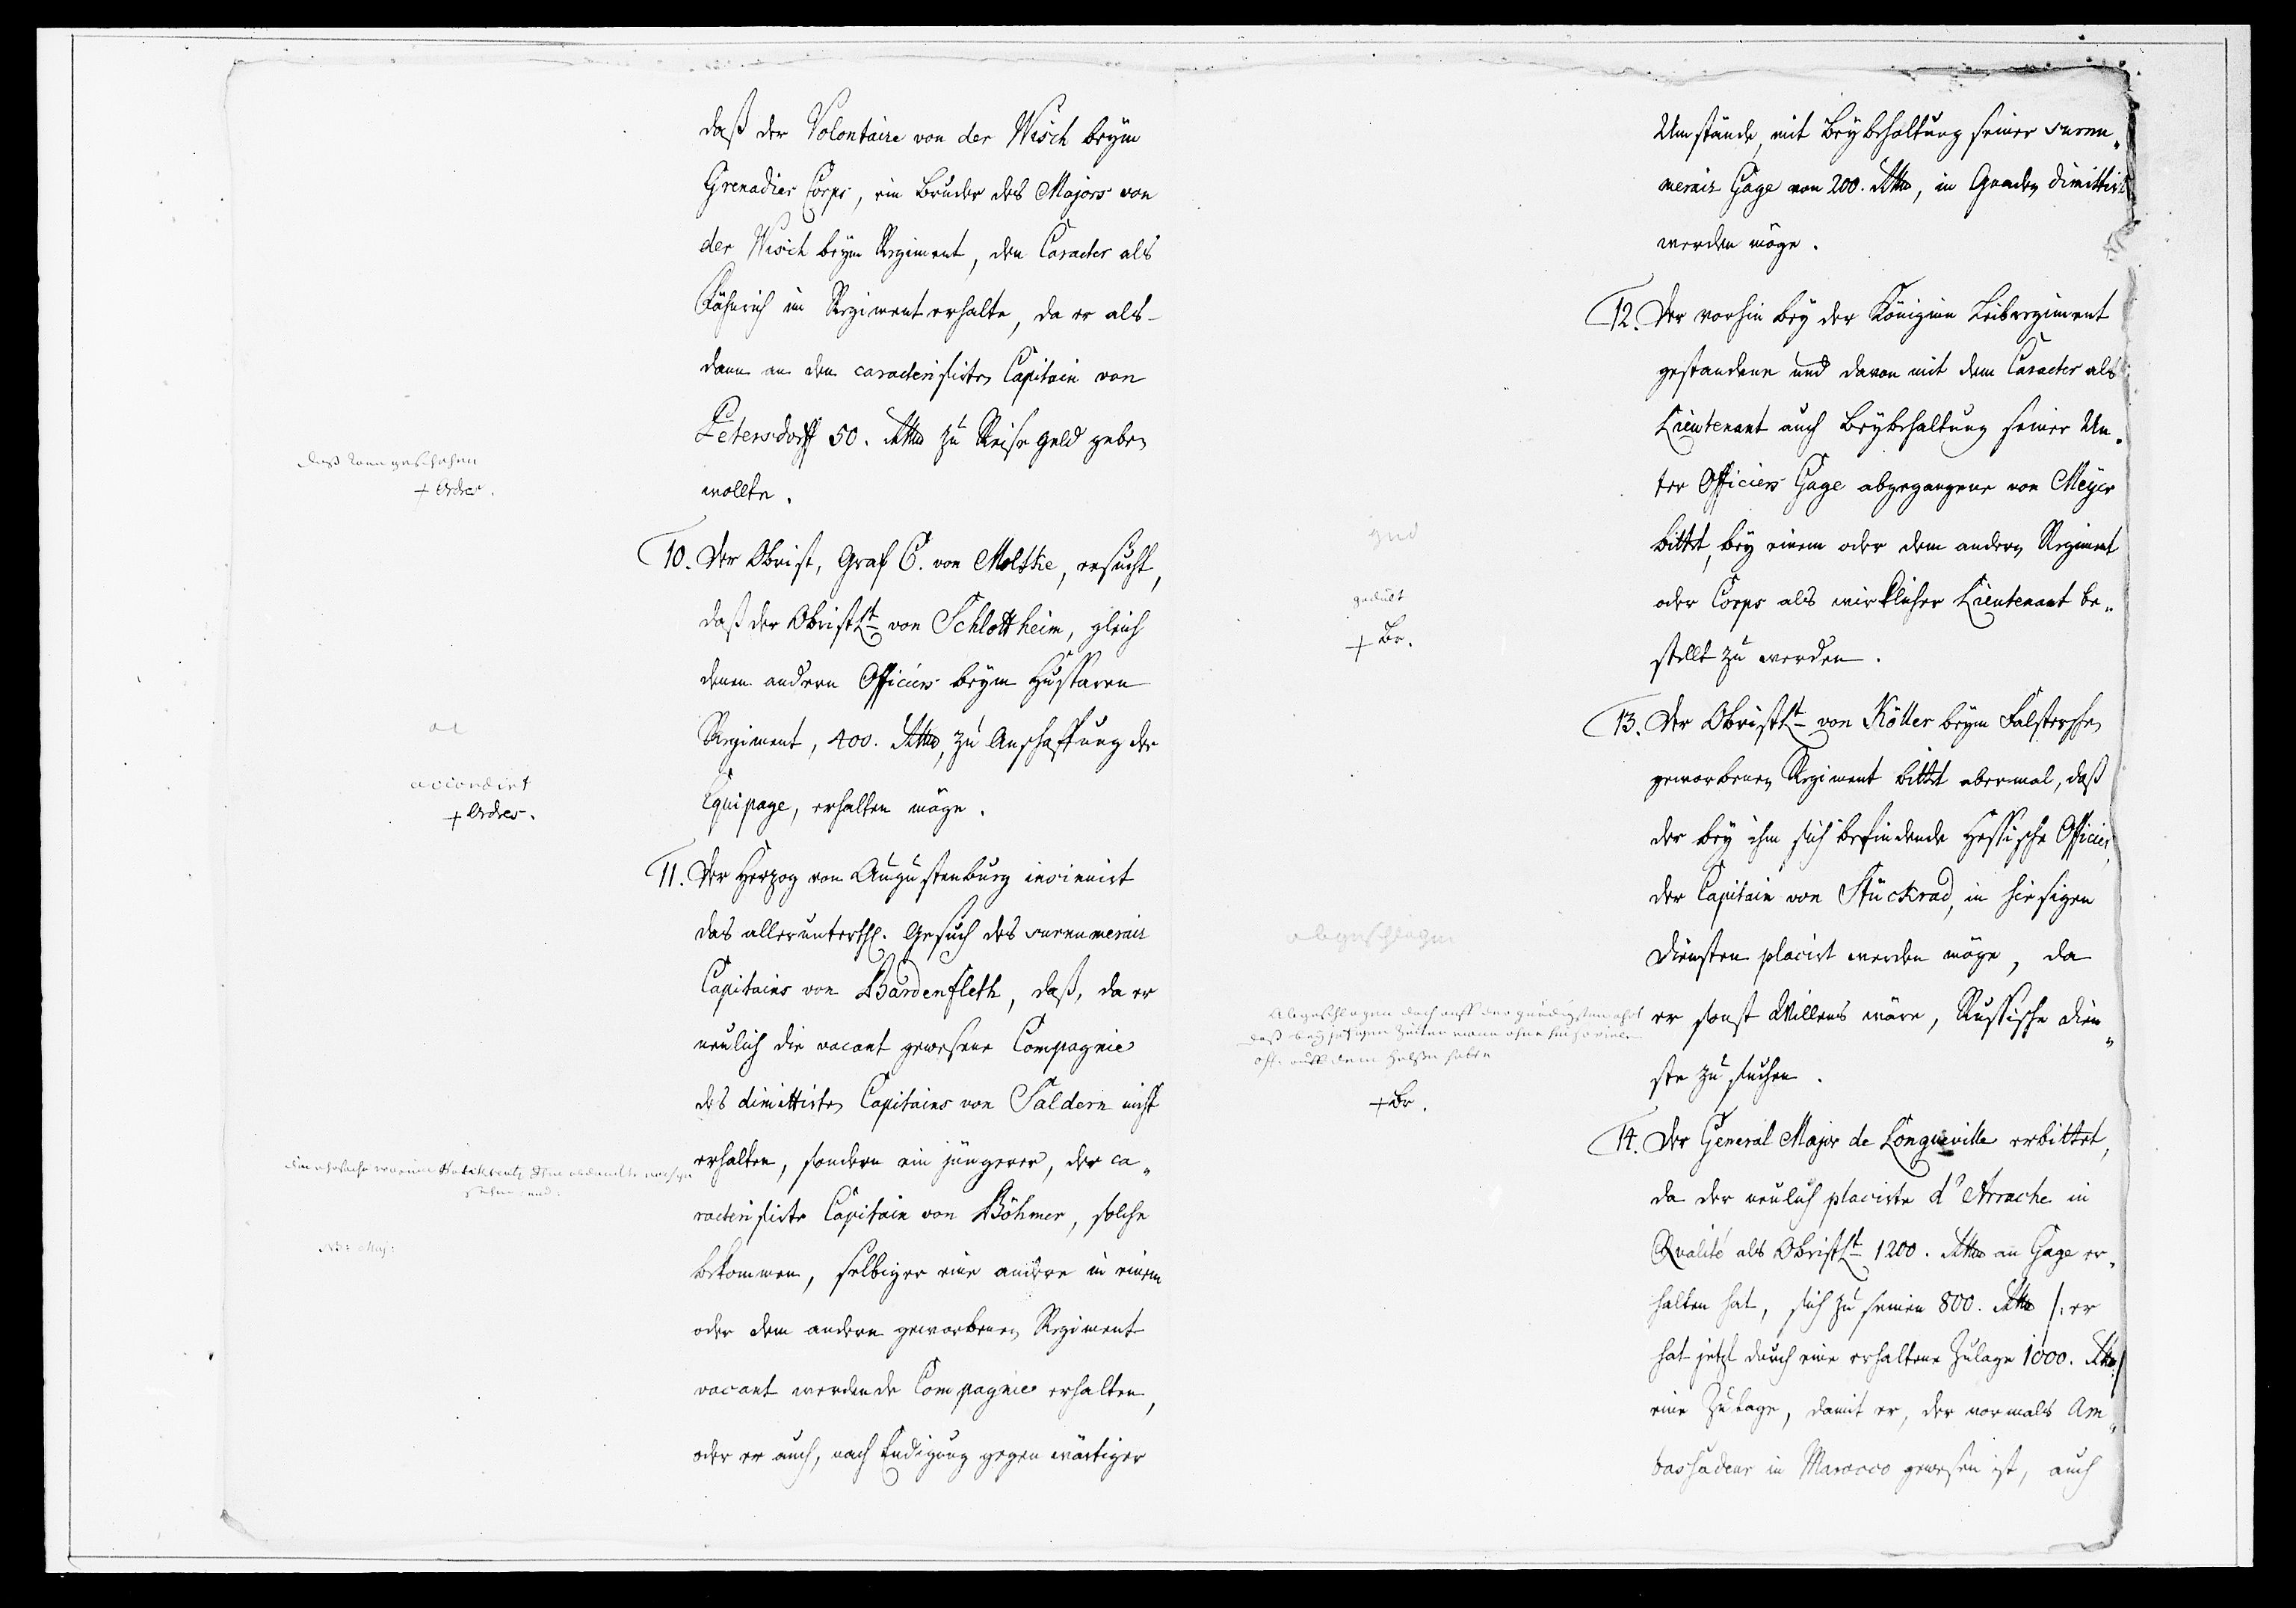 daß der Volontaire von der Wisch beym
Grenadier Corps, ein Bruder des Majors von
der Wisch beym Regiment, den Caracter als
Fähnrich im Regiment erhalte, da er als-
dann an den caracterisirten Capitain von
Petersdorff 50. Rthlr zu Reise Geld geben
wollte.
daß kann geschehen
+ Ordre.
10. Der Obrist, Graf C. von Moltke, ersucht,
daß der ObristLt von Schlottheim, gleich
denen andern Officiers beym Hussaren
Regiment, 400. Rthlr, zu Anschaffung der
Equipage, erhalten möge.
ac
accordirt
+ Ordres.
11. Der Herzog von Augustenburg insinuirt
das allerunterth. Gesuch des surnumerair
Capitains von Bardenfleth, daß, da er
neulich die vacant gewesene Compagnie
des dimittirten Capitains von Saldern nicht
erhalten, sondern ein jüngerer, der ca„
racterisirte Capitain von Böhmer, solche
bekommen, selbiger eine andere in einem
oder dem andern geworbenen Regiment
vacant werdende Compagnie erhalten,
oder er auch, nach Endigung gegenwärtiger
NB: Maj:
Umstände, mit Beybehaltung seiner surnu„
merair Gage von 200. Rthlr, in Gnaden dimittirt
werden möge.
12. Der vorhin bey der Königinn Leibregiment
gestandene und davon mit dem Caracter als
Lieutenant auch Beybehaltung seiner Un„
ter Officiers Gage abgegangene von Meyer
bittet, bey einem oder dem andern Regiment
oder Corps als wirklicher Lieutenant be„
stellt zu werden.
gedult
+ Br.
13. Der ObristLt von Köller beym Falsterschen
geworbenen Regiment bittet abermal, daß
der bey ihm sich befindende Hessische Officier,
der Capitain von Stückrad, in hiesigen
Diensten placirt werden möge, da
er sonst Willens wäre, Russische Dien„
ste zu suchen.
abgeschlagen
Abgeschlagen doch auf der gnädigsten ahrt
daß bey jetzigen Zeiten man ohne hin so viele
off. auf dem Halse habe
+ Br.
14. Der General Major de Longueville erbittet,
da der neulich placirte d'Arrache in
Qvalité als ObristLt 1200. Rthlr an Gage er„
halten hat, sich zu seinen 800. Rthlr /: er
hat jetzt durch eine erhaltene Zulage 1000. Rthlr :/
eine Zulage, damit er, der vormals Am„
bassadeur in Marocco gewesen ist, auch